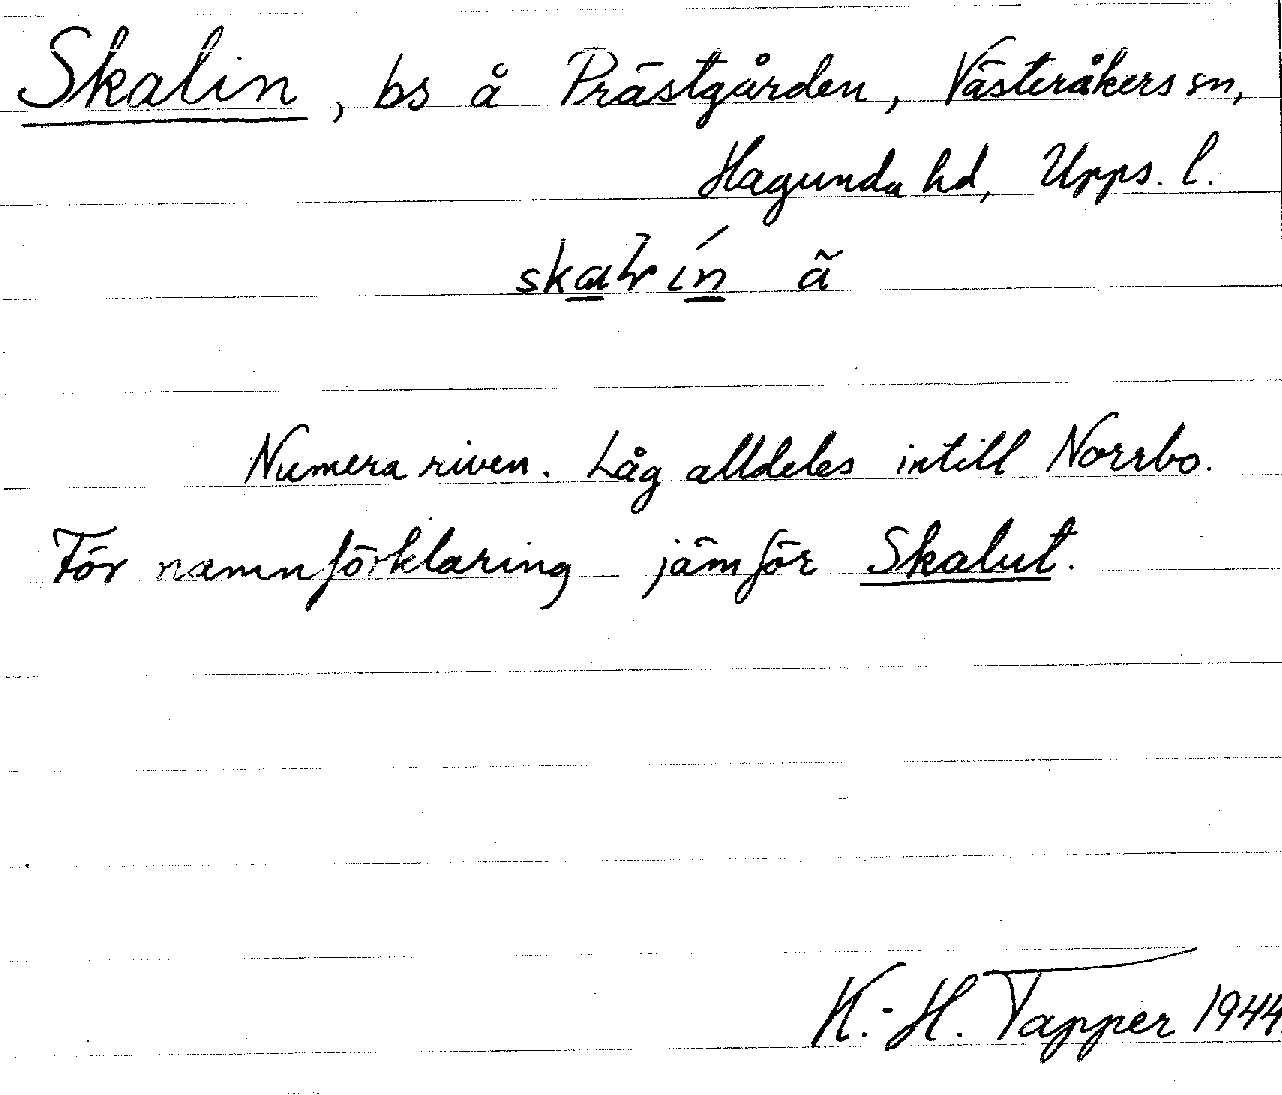 Skalin, bs å Prästgården, Västeråkers sn,
Hagunda hd, Upps. l.
ã
Numera riven. Låg alldeles intill Norrbo.
För namnförklaring jämför Skalut.
K.-H. Tapper 1944